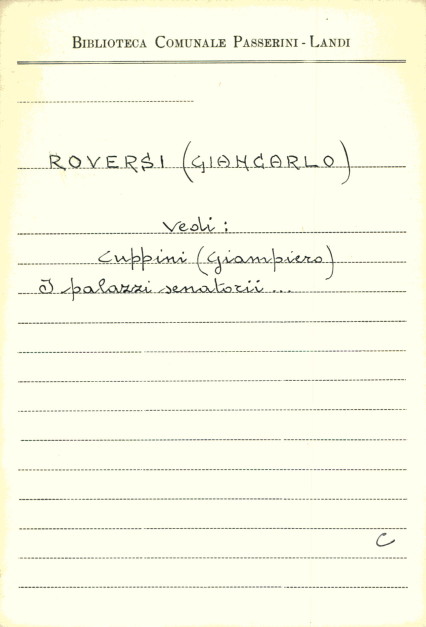 BIBLIOTECA COMUNALE PASSERINI - LANDI
ROVERSI (GIANCARLO)
Vedi :
Cuppini (Giampiero)
I palazzi senatorii ...
C